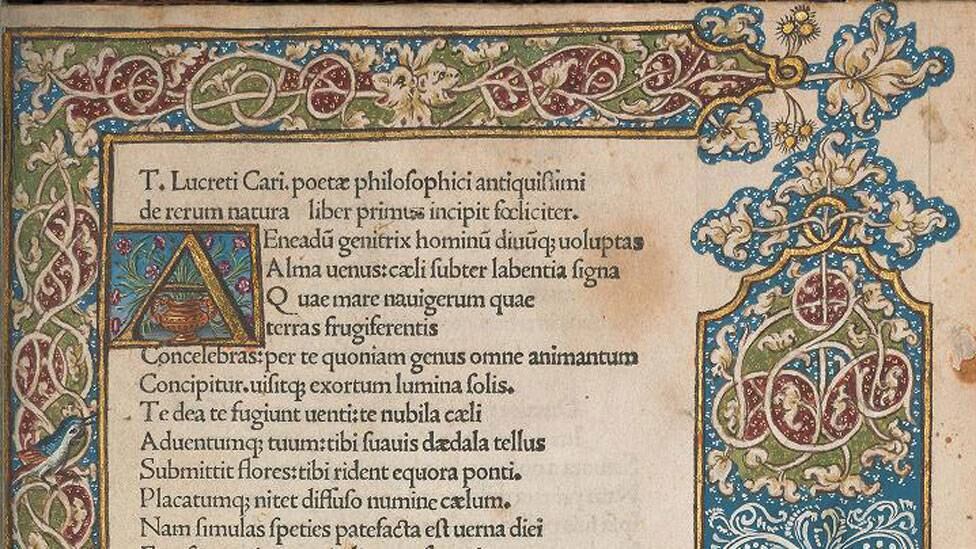 T. Lucreti Cari. poetæ philosophici antiquiſsimi
de rerum natura liber primus incipit fœliciter.
AEneadũ genitrix hominũ diuũq; uoluptas
Alma uenus: cæli ſubter labentia ſigna
Quae mare nauigerum quae
terras frugiferentis
Concelebras: per te quoniam genus omne animantum
Concipitur. uiſitq; exortum lumina ſolis.
Te dea te fugiunt uenti: te nubila cæli
Aduentumq; tuum: tibi ſuauis dædala tellus
Submittit flores: tibi rident equora ponti.
Placatumq; nitet diffuſo numine cælum.
Nam ſimulas ſpeties patefacta eſt uerna diei